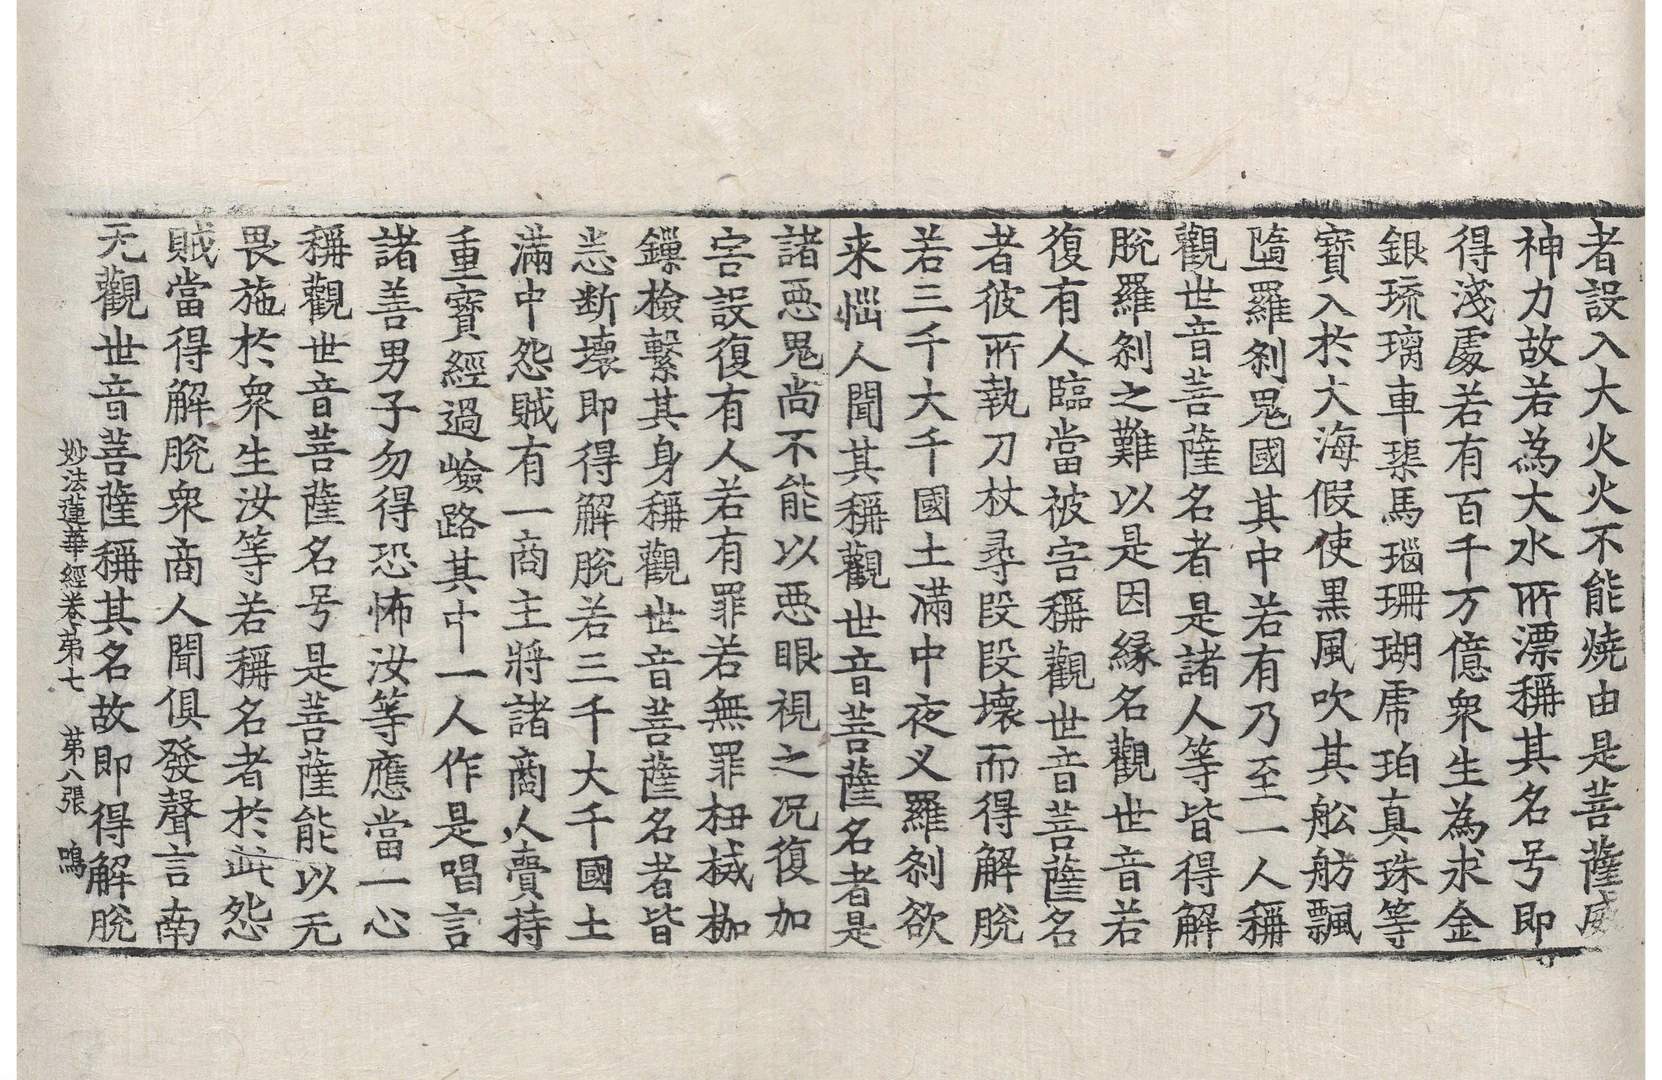 者設入大火火不能燒由是菩薩威
神力故若為大水所漂稱其名号即
得淺處若有百千万億衆生為求金
銀琉璃車𤦲馬瑙珊瑚虎珀真珠等
寶入於大海假使黒風吹其舩舫飄
墮羅刹鬼國其中若有乃至一人稱
觀世音菩薩名者是諸人等皆得解
脫羅刹之難以是因緣名觀世音若
復有人臨當被害稱觀世音菩薩名
者彼所執刀杖尋段段壞而得解脫
若三千大千國土滿中夜叉羅刹欲
来惱人聞其稱觀世音菩薩名者是
諸惡鬼尚不能以惡眼視之况復加
害設復有人若有罪若無罪杻械枷
鏁檢繫其身稱觀世音菩薩名者皆
悉断壞即得解脫若三千大千國土
滿中怨賊有一商主將諸商人賷持
重寶經過嶮路其中一人作是唱言
諸善男子勿得恐怖汝等應當一心
稱觀世音菩薩名号是菩薩能以无
畏施於衆生汝等若稱名者於此怨
賊當得解脫衆商人聞俱發聲言南
无觀世音菩薩稱其名故即得解脫
妙法蓮華經卷第七 第八張 鳴